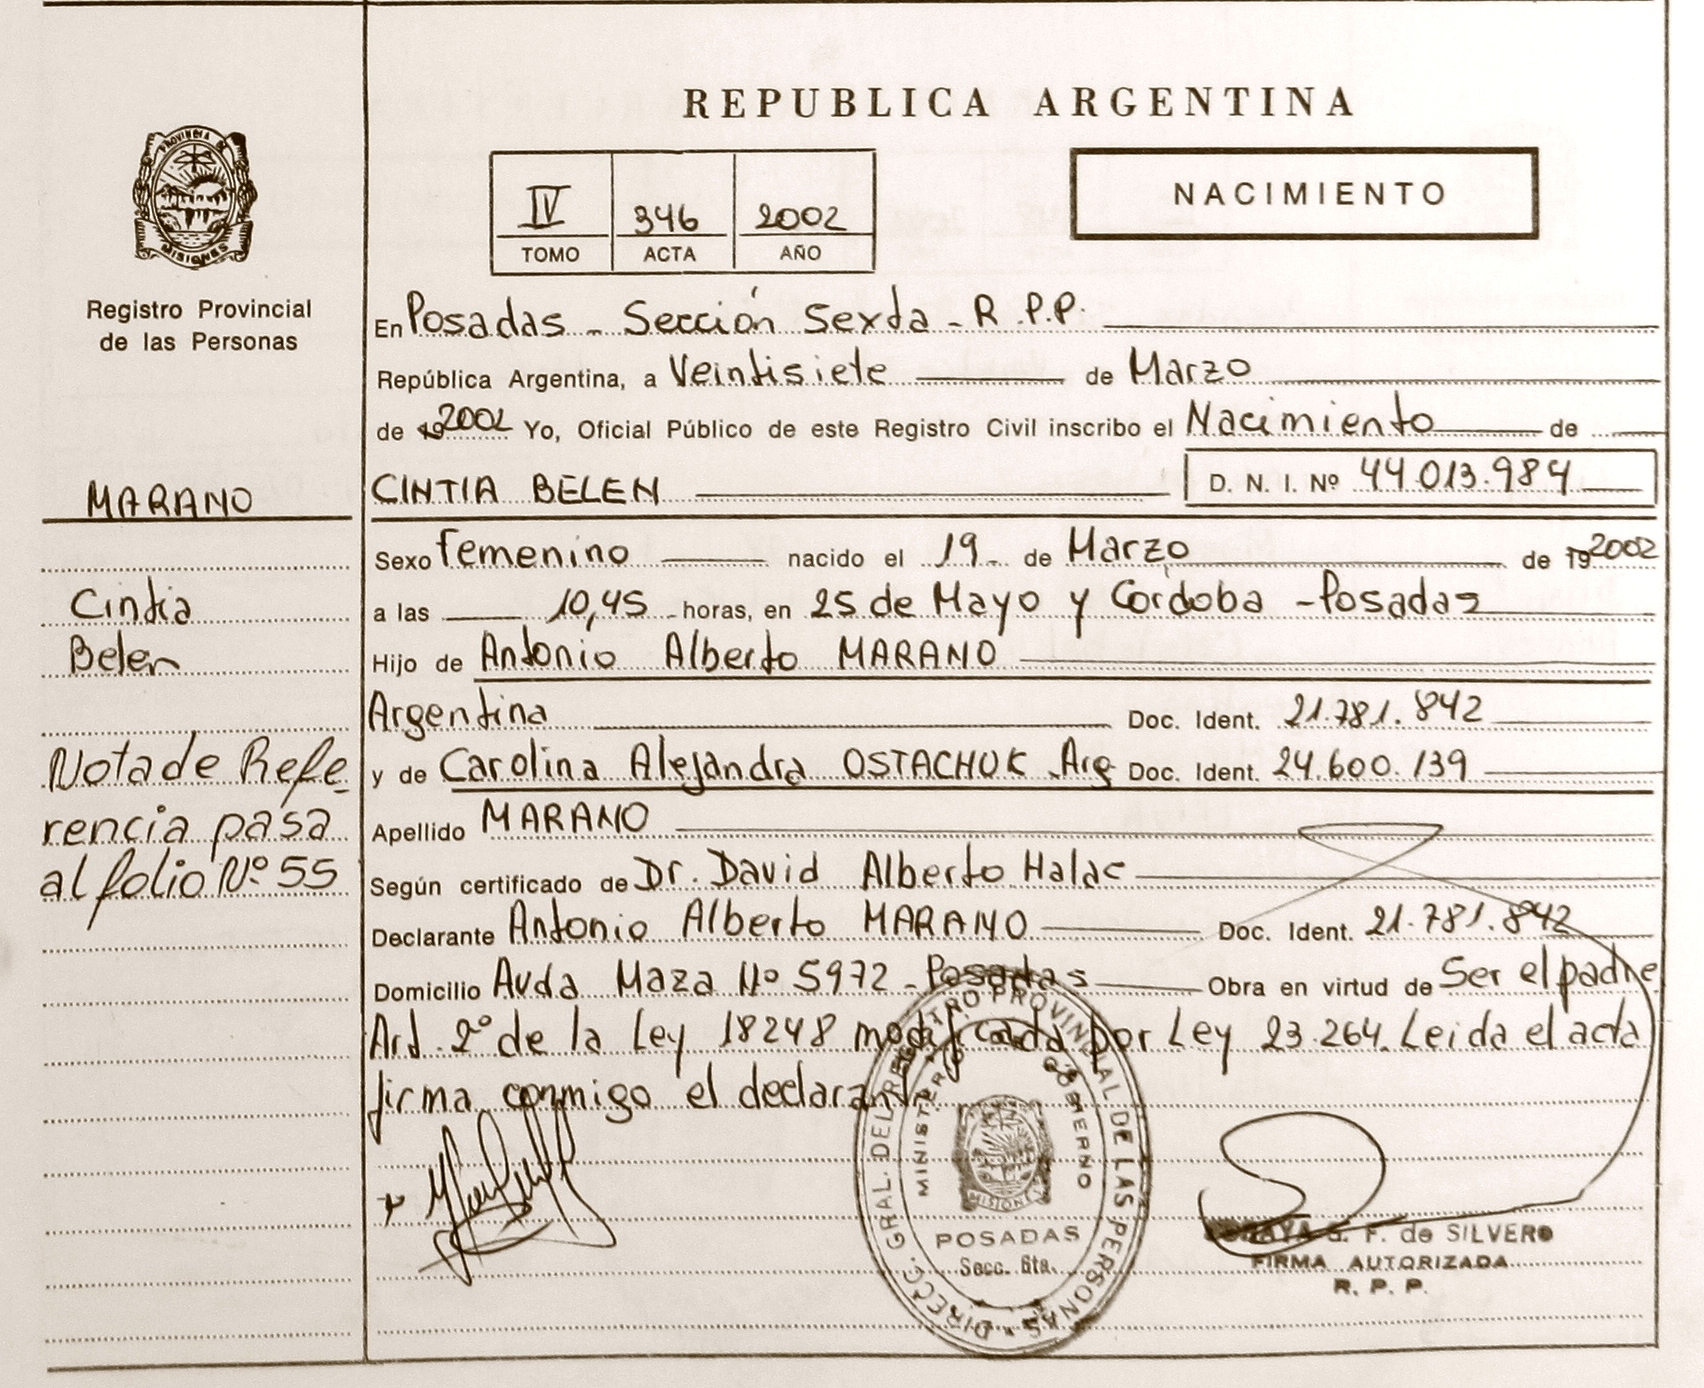 REPUBLICA ARGENTINA
PROVINCIA DE
MISIONES
Registro Provincial
de las Personas
IV 346 2002
TOMO ACTA AÑO
NACIMIENTO
En Posadas - Sección Sexta - R.P.P.
República Argentina, a Veintisiete de Marzo
de 19 2002 Yo, Oficial Público de este Registro Civil inscribo el Nacimiento de
CINTIA BELEN D. N. I. Nº 44.013.984
Sexo femenino nacido el 19 de Marzo de 19 2002
a las 10,45 horas, en 25 de Mayo y Córdoba - Posadas
Hijo de Antonio Alberto MARANO
Argentina Doc. Ident. 21.781.842
y de Carolina Alejandra OSTACHUK Arg Doc. Ident. 24.600.139
Apellido MARANO
Según certificado de Dr. David Alberto Halac
Declarante Antonio Alberto MARANO Doc. Ident. 21.781.842
Domicilio Avda Maza Nº 5972 - Posadas Obra en virtud de Ser el padre
Art. 2º de la Ley 18248 modificada por Ley 23.264. Leida el acta
firma conmigo el declarante
MARANO
Cintia
Belen
Nota de Refe-
rencia pasa
al folio Nº 55
DIRECC. GRAL. DEL REGISTRO PROVINCIAL DE LAS PERSONAS
MINISTERIO DE GOBIERNO
MISIONES
POSADAS
Secc. 6ta.
G. F. de SILVERO
FIRMA AUTORIZADA
R. P. P.